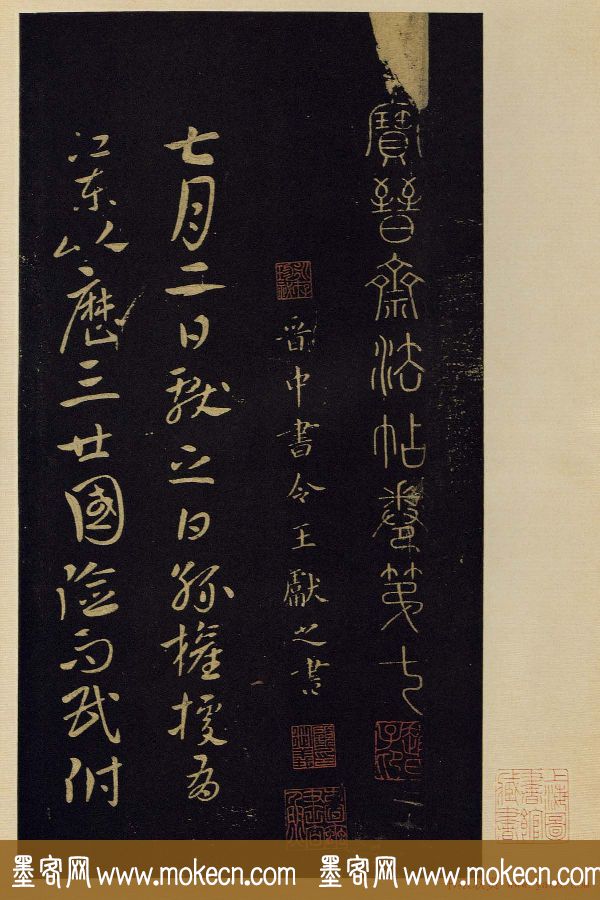 寶晉齋法帖卷第七
晉中書令王獻之書
七月二日獻之白孫權據有
江東以歷三世國險而民附
上海圖書館藏書
墨客网 www.mokecn.com 墨客网 www.mokecn.com